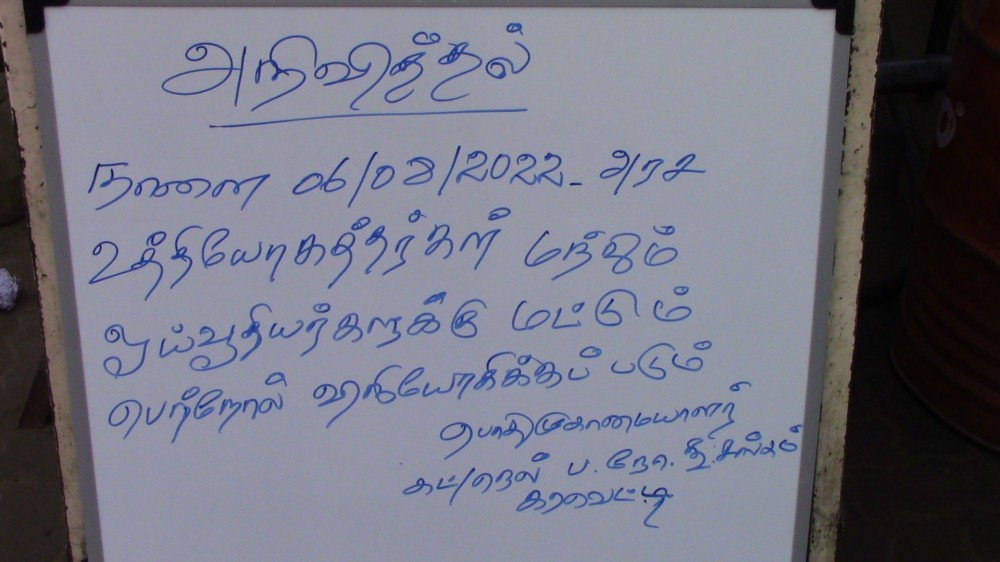 அறிவித்தல்
நாளை 06/08/2022 - அரச
உத்தியோகத்தர்கள் மற்றும்
ஓய்வூதியர்களுக்கு மட்டும்
பெற்றோல் விநியோகிக்கப் படும்
பொதுமுகாமையாளர்
கட்/நெல் ப.நோ.கூ.சங்கம்
கரவெட்டி